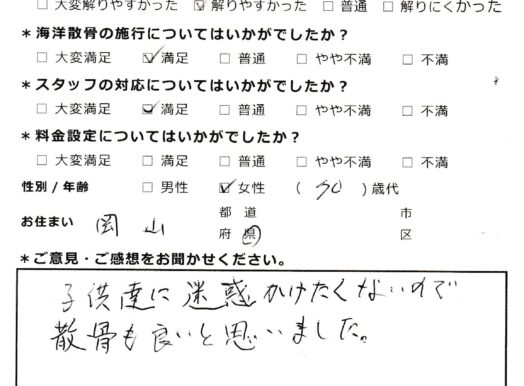 □ 大変解りやすかった ☑ 解りやすかった □ 普通 □ 解りにくかった
＊海洋散骨の施行についてはいかがでしたか？
□ 大変満足 ☑ 満足 □ 普通 □ やや不満 □ 不満
＊スタッフの対応についてはいかがでしたか？
□ 大変満足 ☑ 満足 □ 普通 □ やや不満 □ 不満
＊料金設定についてはいかがでしたか？
□ 大変満足 □ 満足 □ 普通 □ やや不満 □ 不満
性別 / 年齢 □ 男性 ☑ 女性 ( 90 ) 歳代
お住まい 岡山 都 道 府 県 市 区
＊ご意見・ご感想をお聞かせください。
子供達に迷惑かけたくないので
散骨も良いと思いました。